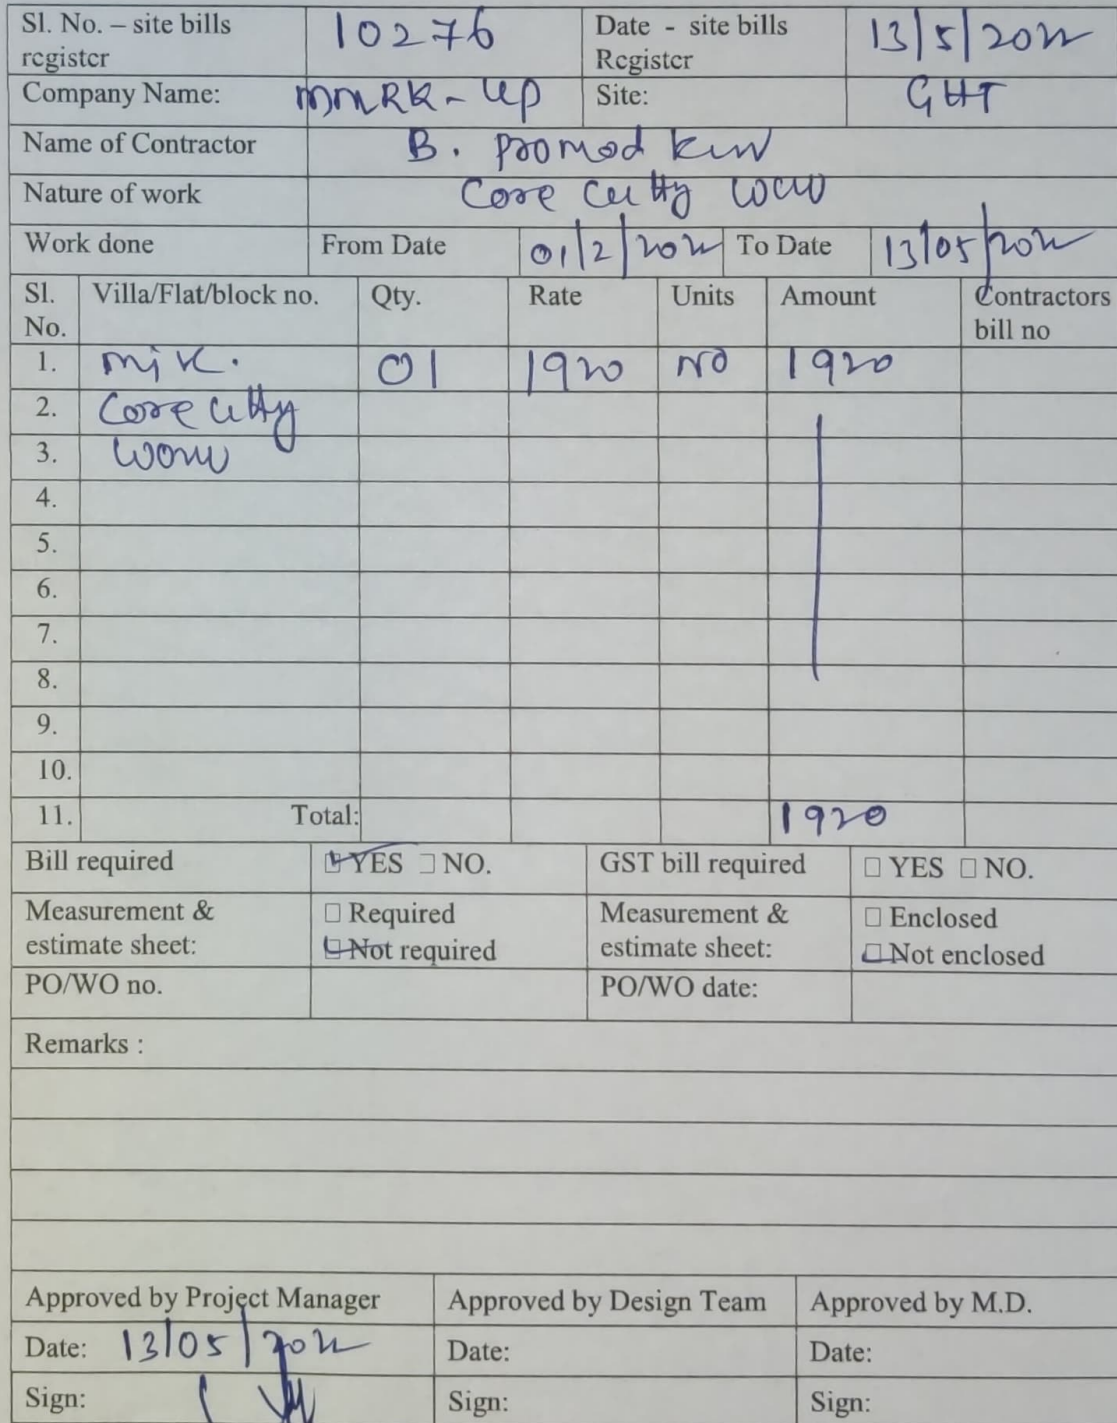 Sl. No. – site bills register 10276 Date - site bills Register 13/5/2022
Company Name: MMRK-UP Site: GHT
Name of Contractor B. Promod
Nature of work Core Cutting
Work done From Date 01/2/2022 To Date 13/05/2022
Sl. No. Villa/Flat/block no. Qty. Rate Units Amount Contractors bill no
1. 01 1920 NO 1920
2. Core Cutting
3. Work
4.
5.
6.
7.
8.
9.
10.
11. Total: 1920
Bill required ☑ YES □ NO. GST bill required □ YES □ NO.
Measurement & estimate sheet: □ Required ☑ Not required Measurement & estimate sheet: □ Enclosed ☑ Not enclosed
PO/WO no. PO/WO date:
Remarks :
Approved by Project Manager Approved by Design Team Approved by M.D.
Date: 13/05/2022 Date: Date:
Sign: Sign: Sign: